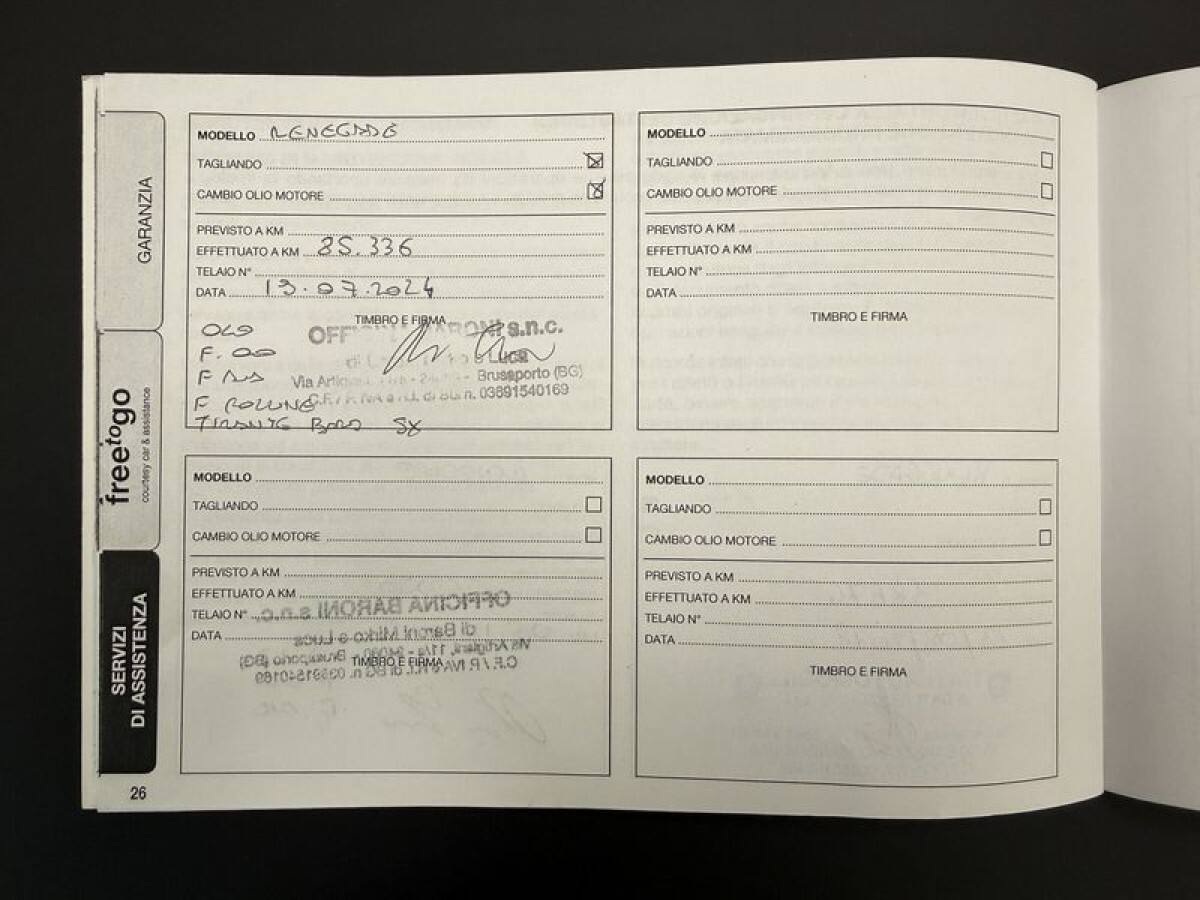 GARANZIA
freetogo
courtesy car & assistance
SERVIZI
DI ASSISTENZA
MODELLO RENEGADE
TAGLIANDO
CAMBIO OLIO MOTORE
PREVISTO A KM
EFFETTUATO A KM 85.336
TELAIO N°
DATA 13.07.2024
TIMBRO E FIRMA
OFFICINA BARONI s.n.c.
Luca
Brusaporto (BG)
n. 03891540169
OLO
F. OO
F
F POLLINE
TIRANTE BARO SX
MODELLO
TAGLIANDO
CAMBIO OLIO MOTORE
PREVISTO A KM
EFFETTUATO A KM
TELAIO N°
DATA
TIMBRO E FIRMA
MODELLO
TAGLIANDO
CAMBIO OLIO MOTORE
PREVISTO A KM
EFFETTUATO A KM
TELAIO N°
DATA
TIMBRO E FIRMA
OFFICINA BARONI s.n.c.
di Baroni Mirko e Luca
MODELLO
TAGLIANDO
CAMBIO OLIO MOTORE
PREVISTO A KM
EFFETTUATO A KM
TELAIO N°
DATA
TIMBRO E FIRMA
26